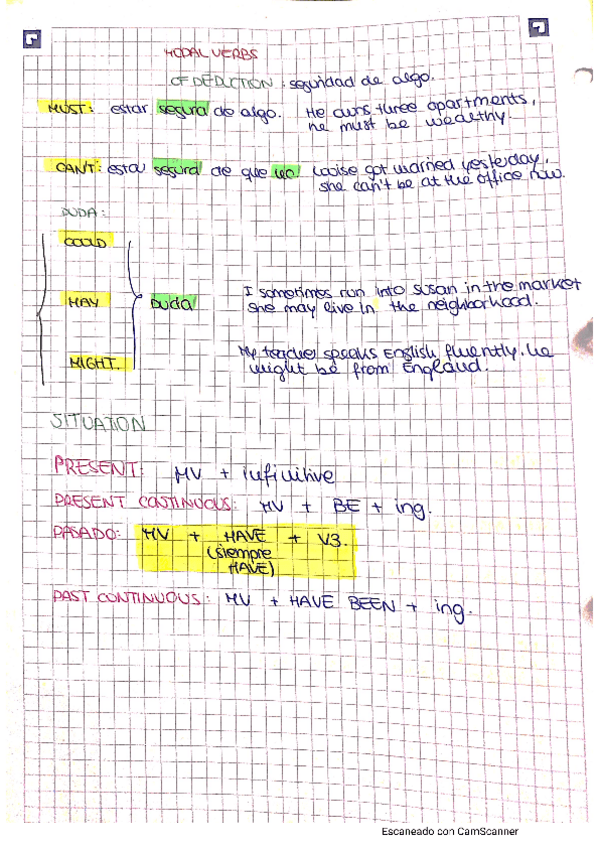 MODAL VERBS
OF DEDUCTION : seguridad de algo.
MUST: estar segura de algo. He owns three apartments,
he must be wealthy.
CAN'T: estar segura de que no Louise got married yesterday,
she can't be at the office now.
DUDA:
COULD
MAY Duda I sometimes run into Susan in the market
she may live in the neighborhood.
MIGHT. My teacher speaks English fluently. he
might be from England.
SITUATION
PRESENT: MV + infinitive
PRESENT CONTINUOUS: MV + BE + ing.
PASADO: MV + HAVE + V3.
(siempre
HAVE)
PAST CONTINUOUS: MV + HAVE BEEN + ing.
Escaneado con CamScanner